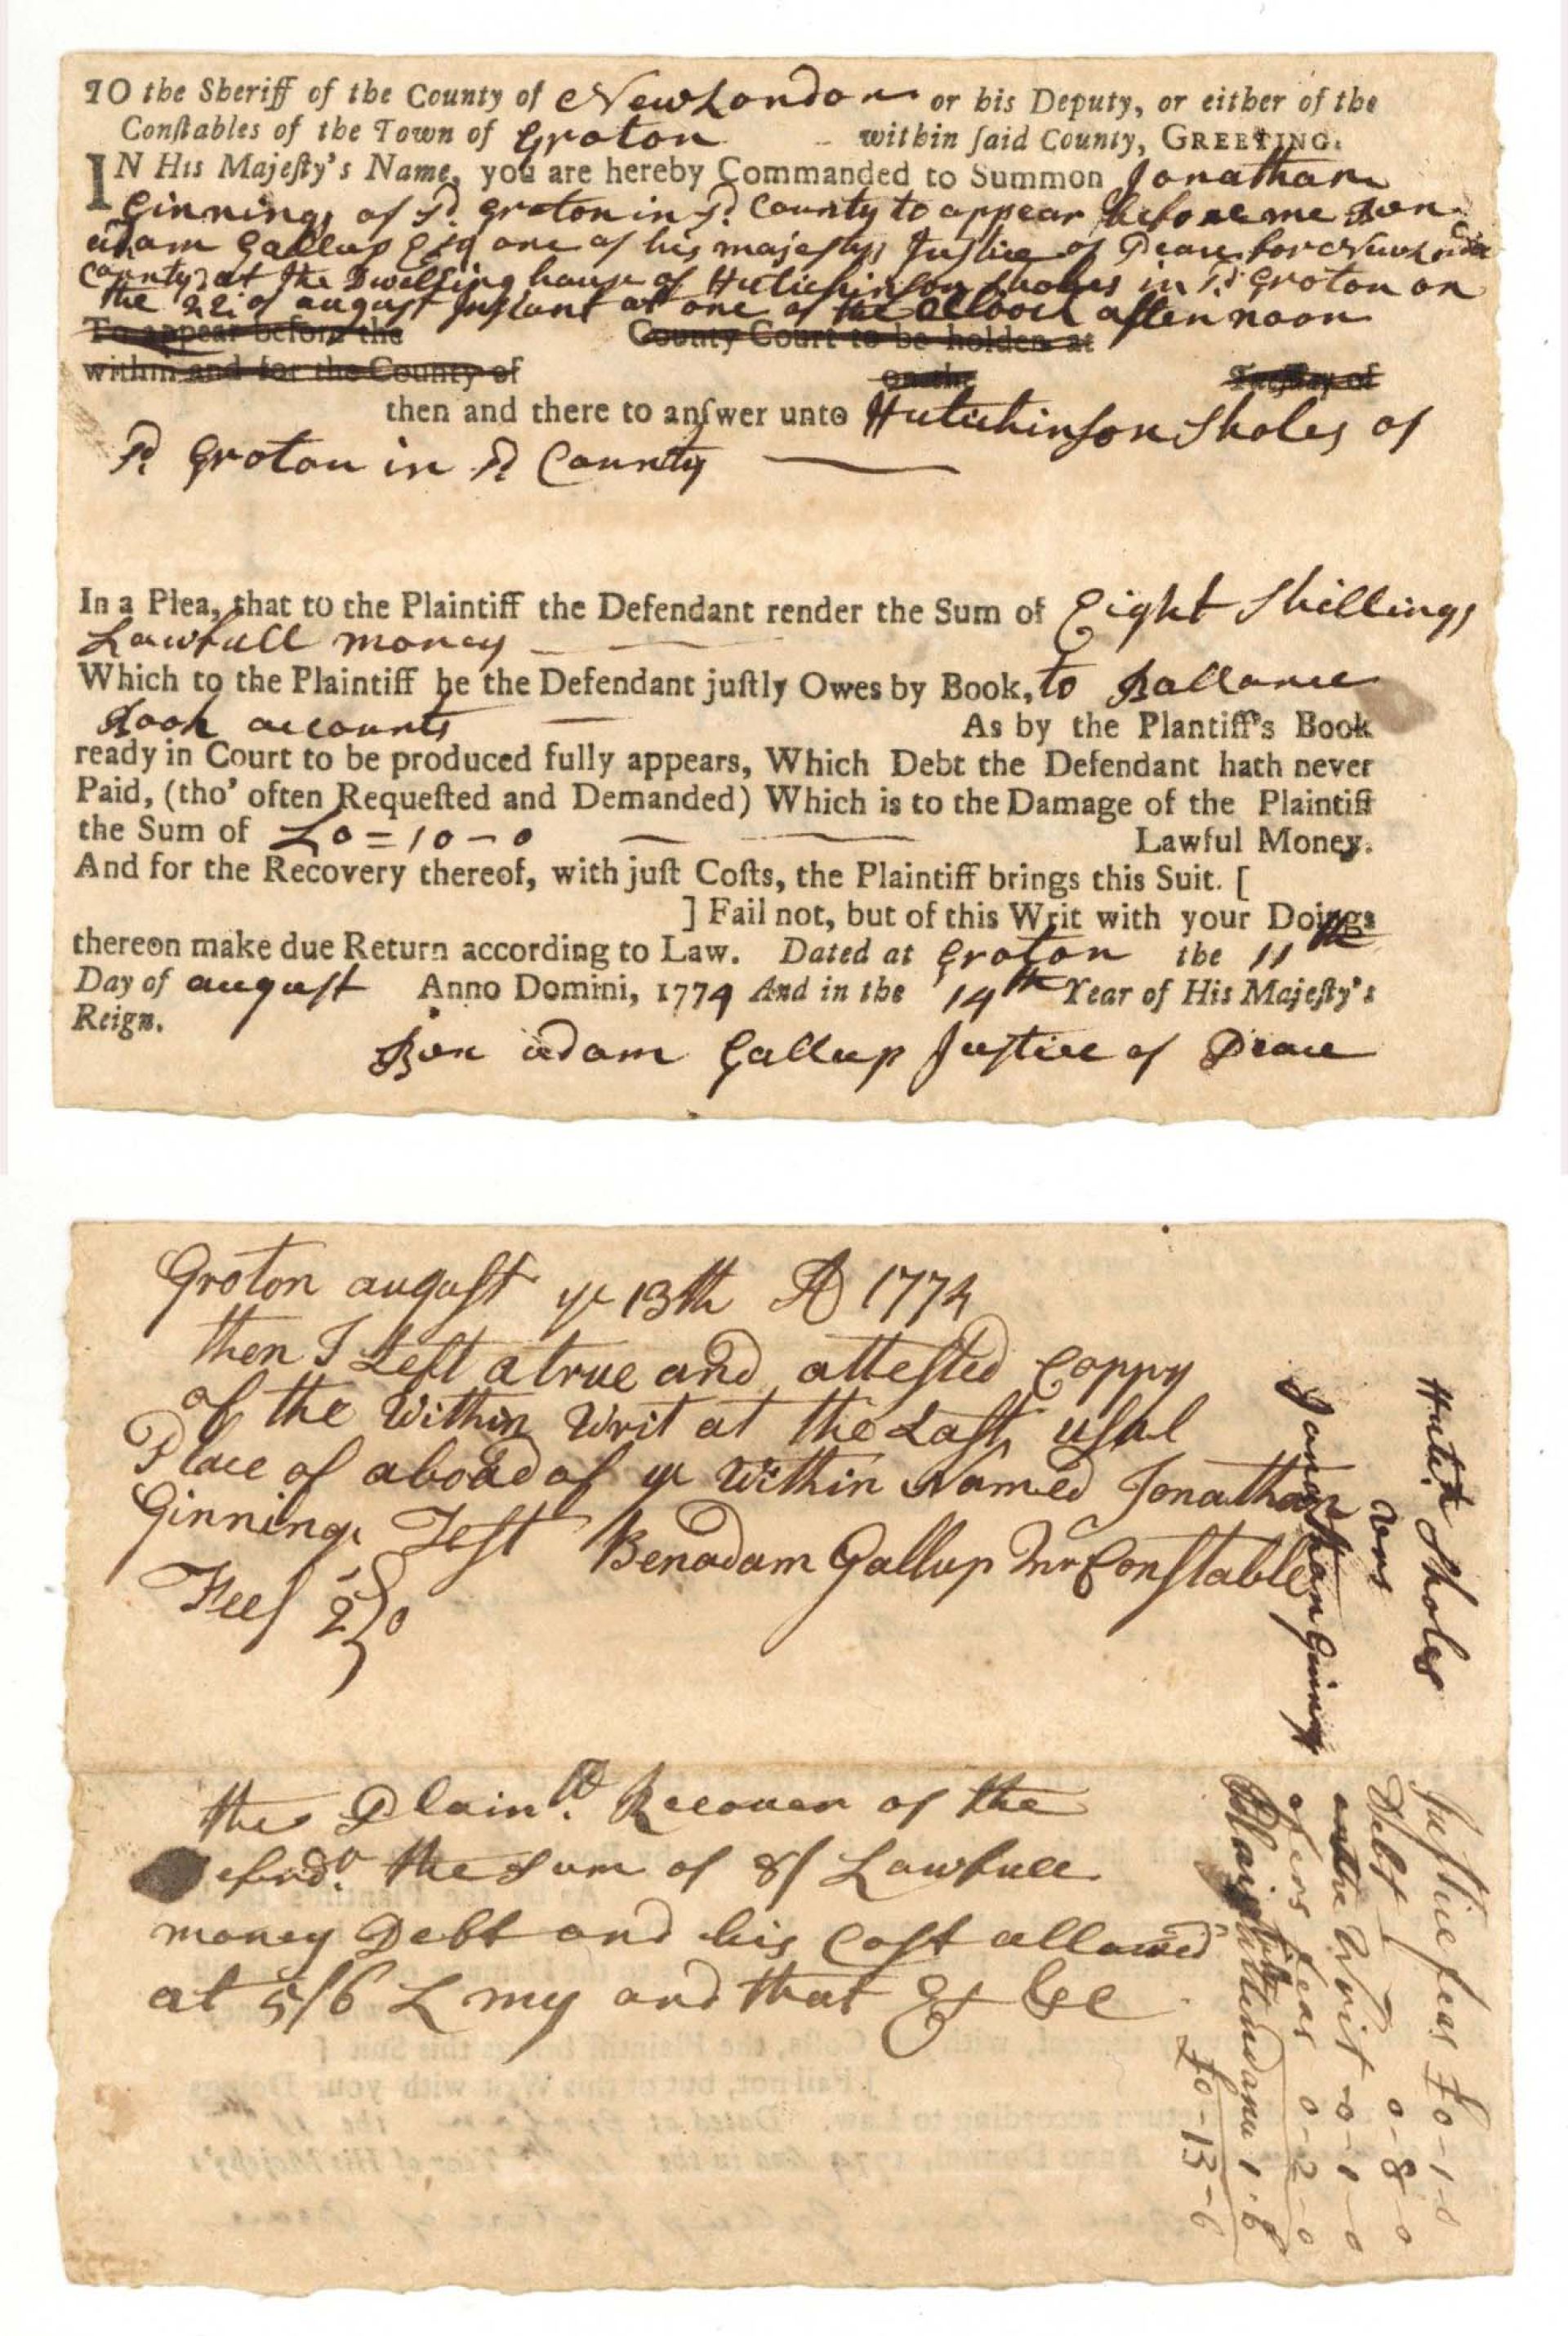 TO the Sheriff of the County of New London or his Deputy, or either of the
Conſtables of the Town of Groton within ſaid County, GREETING.
IN His Majeſty's Name, you are hereby Commanded to Summon Jonathan
Ginnings of sd. groton in sd. County to appear before me Ben
adam Gallup Esq one of his majestys Justice of Peace for New London
County at the Dwelling house of Hutichinson Sholes in sd. Groton on
the 22: of august Instant at one of the Clock afternoon
To appear before the County Court to be holden at
within and for the County of on the Tueſday of
then and there to anſwer unto Hutichinson Sholes of
sd. Groton in sd. County
In a Plea, that to the Plaintiff the Defendant render the Sum of Eight Shillings
Lawfull money
Which to the Plaintiff he the Defendant juſtly Owes by Book, to Ballance
Book accounts As by the Plantiff's Book
ready in Court to be produced fully appears, Which Debt the Defendant hath never
Paid, (tho' often Requeſted and Demanded) Which is to the Damage of the Plaintiff
the Sum of £0=10-0 Lawful Money.
And for the Recovery thereof, with juſt Coſts, the Plaintiff brings this Suit. [
] Fail not, but of this Writ with your Doings
thereon make due Return according to Law. Dated at Groton the 11th
Day of august Anno Domini, 1774 And in the 14th Year of His Majeſty's
Reign.
Ben adam Gallup Justice of Peace
Groton august ye 13th AD 1774
then I Left a true and attested Coppy
of the Within Writ at the Last usal
Place of aboad of ye Within Named Jonathan
Ginnings Test Benadam Gallup Jnr Constable
Fees 2/0
the Plaintt. Recover of the
Defendt. the sum of 8/ Lawfull
money Debt and his Cost allowed
at 5/6 L my and that Ex &c
Hutch Sholes
vers
Jonathan Ginings
Justice feas £0-1-0
Debt 0-8-0
Writ 0-1-0
ofisers feas 0-2-0
Plaintifs attendance 1-6
£0-13-6